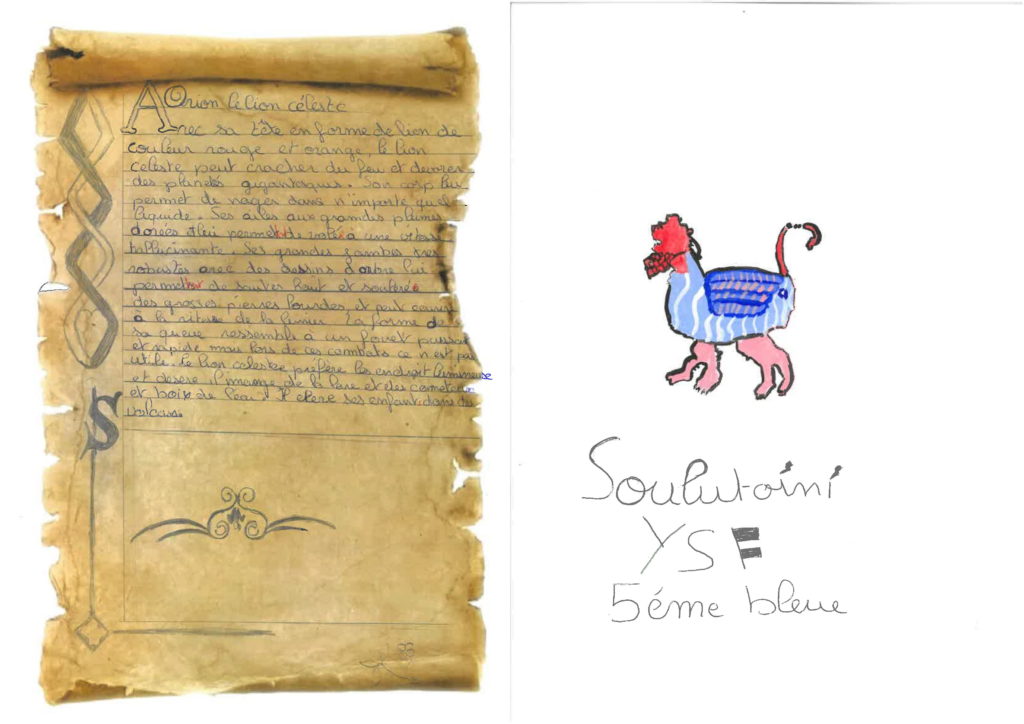 Orion le lion céleste
Avec sa tête en forme de lion de
couleur rouge et orange, le lion
celeste peut cracher du feu et devorer
des planètes gigantesques. Son corp lui
permet de nages dans n'importe quel
liquide. Ses ailes aux grandes plumes
dorées lui permet de voler a une vitesse
hallucinante. Ses grandes jambes tres
robustes avec des dessins d'arbre lui
permettent de sauter haut et soulever
des grosses pierses lourdes et peut
à la vitesse de la lumier. La forme de
sa queue ressemble à un fouet puissant
et rapide mais lors de ces combats ce n'est pas
utile. Le lion celeste préfère les endroit lumineuse
et de la lave et des
et boire de l'eau. Il eleve ses enfant dans des
volcans.
S
Soulutoini
YSF
5éme bleue